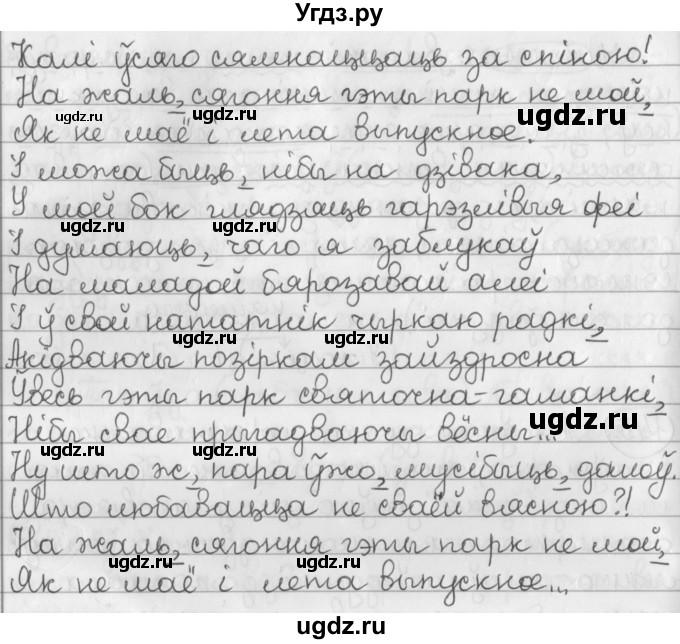 Угдз.ру
Калі ўсяго сямнаццаць за спіною!
На жаль, сягоння гэты парк не мой,
Як не маё і лета выпускное.
І можа быць, нібы на дзівака,
У мой бок глядзяць гарэзлівыя феі
І думаюць, чаго я заблукаў
На маладой бярозавай алеі
І ў свой нататнік чыркаю радкі,
Акідваючы позіркам зайздросна
Ўвесь гэты парк святочна-гаманкі,
Нібы свае прыгадваючы вёсны...
Ну што ж, пара ўжо, мусібыць, дамоў.
Што любавацца не сваёй вясною?!
На жаль, сягоння гэты парк не мой,
Як не маё і лета выпускное...
ugdz.ru
ugdz.ru
ugdz.ru
ugdz.ru
ugdz.ru
ugdz.ru
ugdz.ru
ugdz.ru
ugdz.ru
ugdz.ru
ugdz.ru
ugdz.ru
ugdz.ru